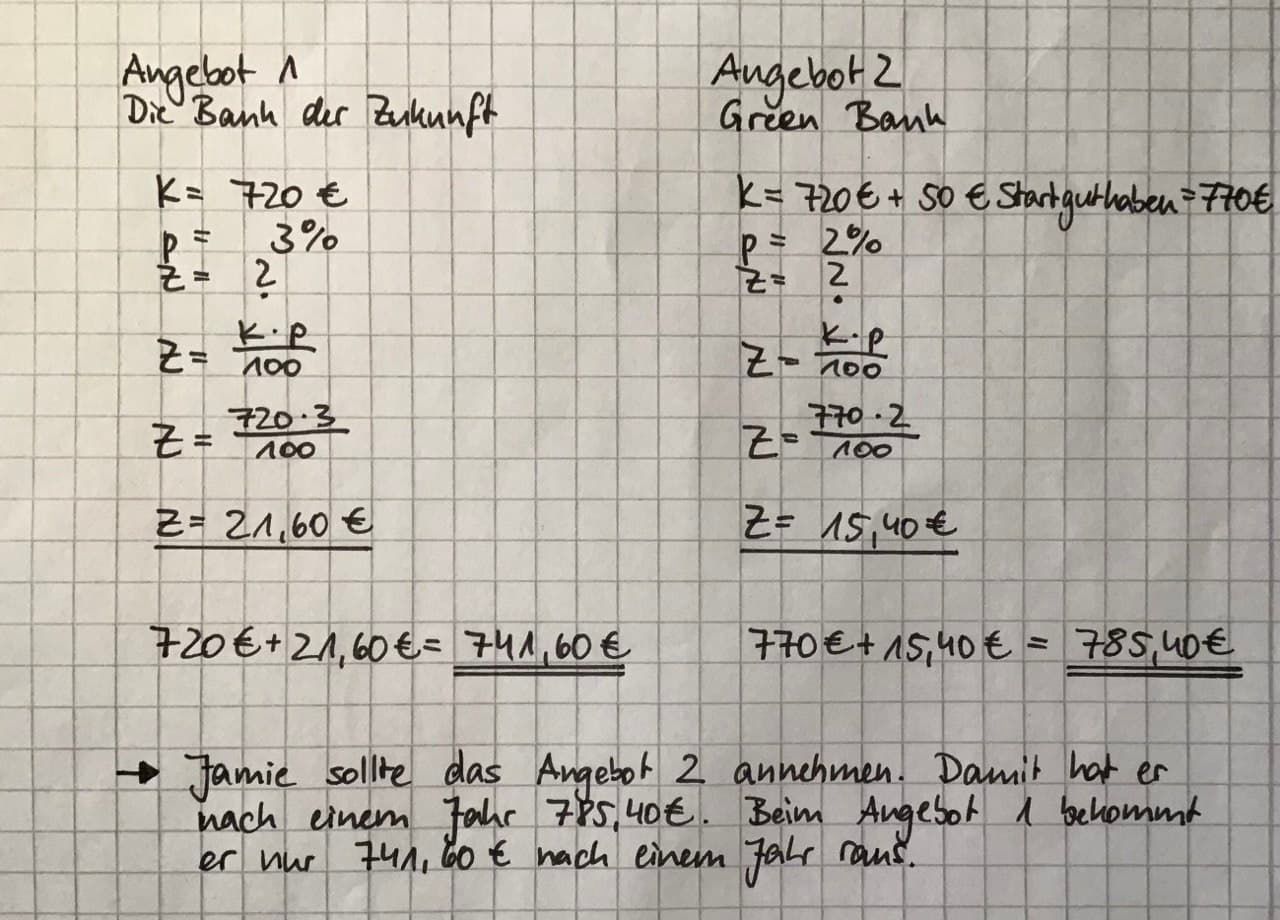 Angebot 1
Die Bank der Zukunft
K = 720 €
p = 3%
Z = ?
Z = K · p / 100
Z = 720 · 3 / 100
Z = 21,60 €
720 € + 21,60 € = 741,60 €
Angebot 2
Green Bank
K = 720 € + 50 € Startguthaben = 770 €
p = 2%
Z = ?
Z = K · p / 100
Z = 770 · 2 / 100
Z = 15,40 €
770 € + 15,40 € = 785,40 €
→ Jamie sollte das Angebot 2 annehmen. Damit hat er
nach einem Jahr 785,40 €. Beim Angebot 1 bekommt
er nur 741,60 € nach einem Jahr raus.